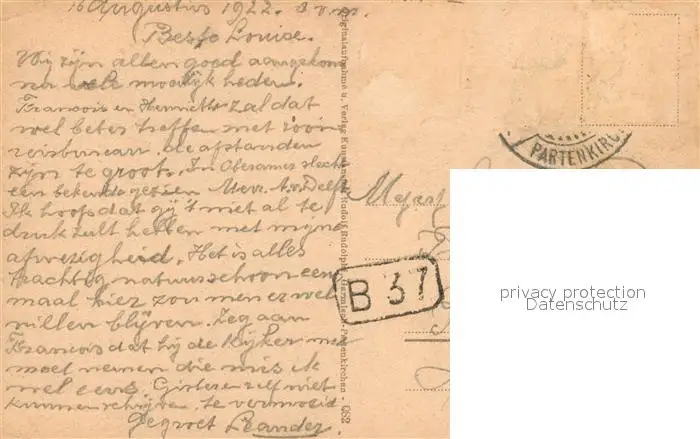 16 Augustus 1922.
Beste Louise.
Wij zijn allen goed aangekomen
na vele moeilijkheden.
Francois en Henriette zal dat
wel beter treffen met zoo'n
reisbureau, de afstanden
zijn te groot. In Oberammergau
een bekende gezien Mevr. v. Delft
Ik hoop dat gij 't niet al te
druk zult hebben met mijne
afwezigheid. Het is alles
prachtig natuurschoon een
maal hier zou men er wel
willen blijven. Zeg aan
Francois dat hij de kijker mee
moet nemen die mis ik
wel eens. Gisteren zelf niet
kunnen schrijven te vermoeid
Gegroet Leander.
Originalaufnahme u. Verlag Kunstanst. Rudolf Rudolphi, Garmisch-Partenkirchen - 082
PARTENKIRCH
Mejuf
B 37
privacy protection
Datenschutz